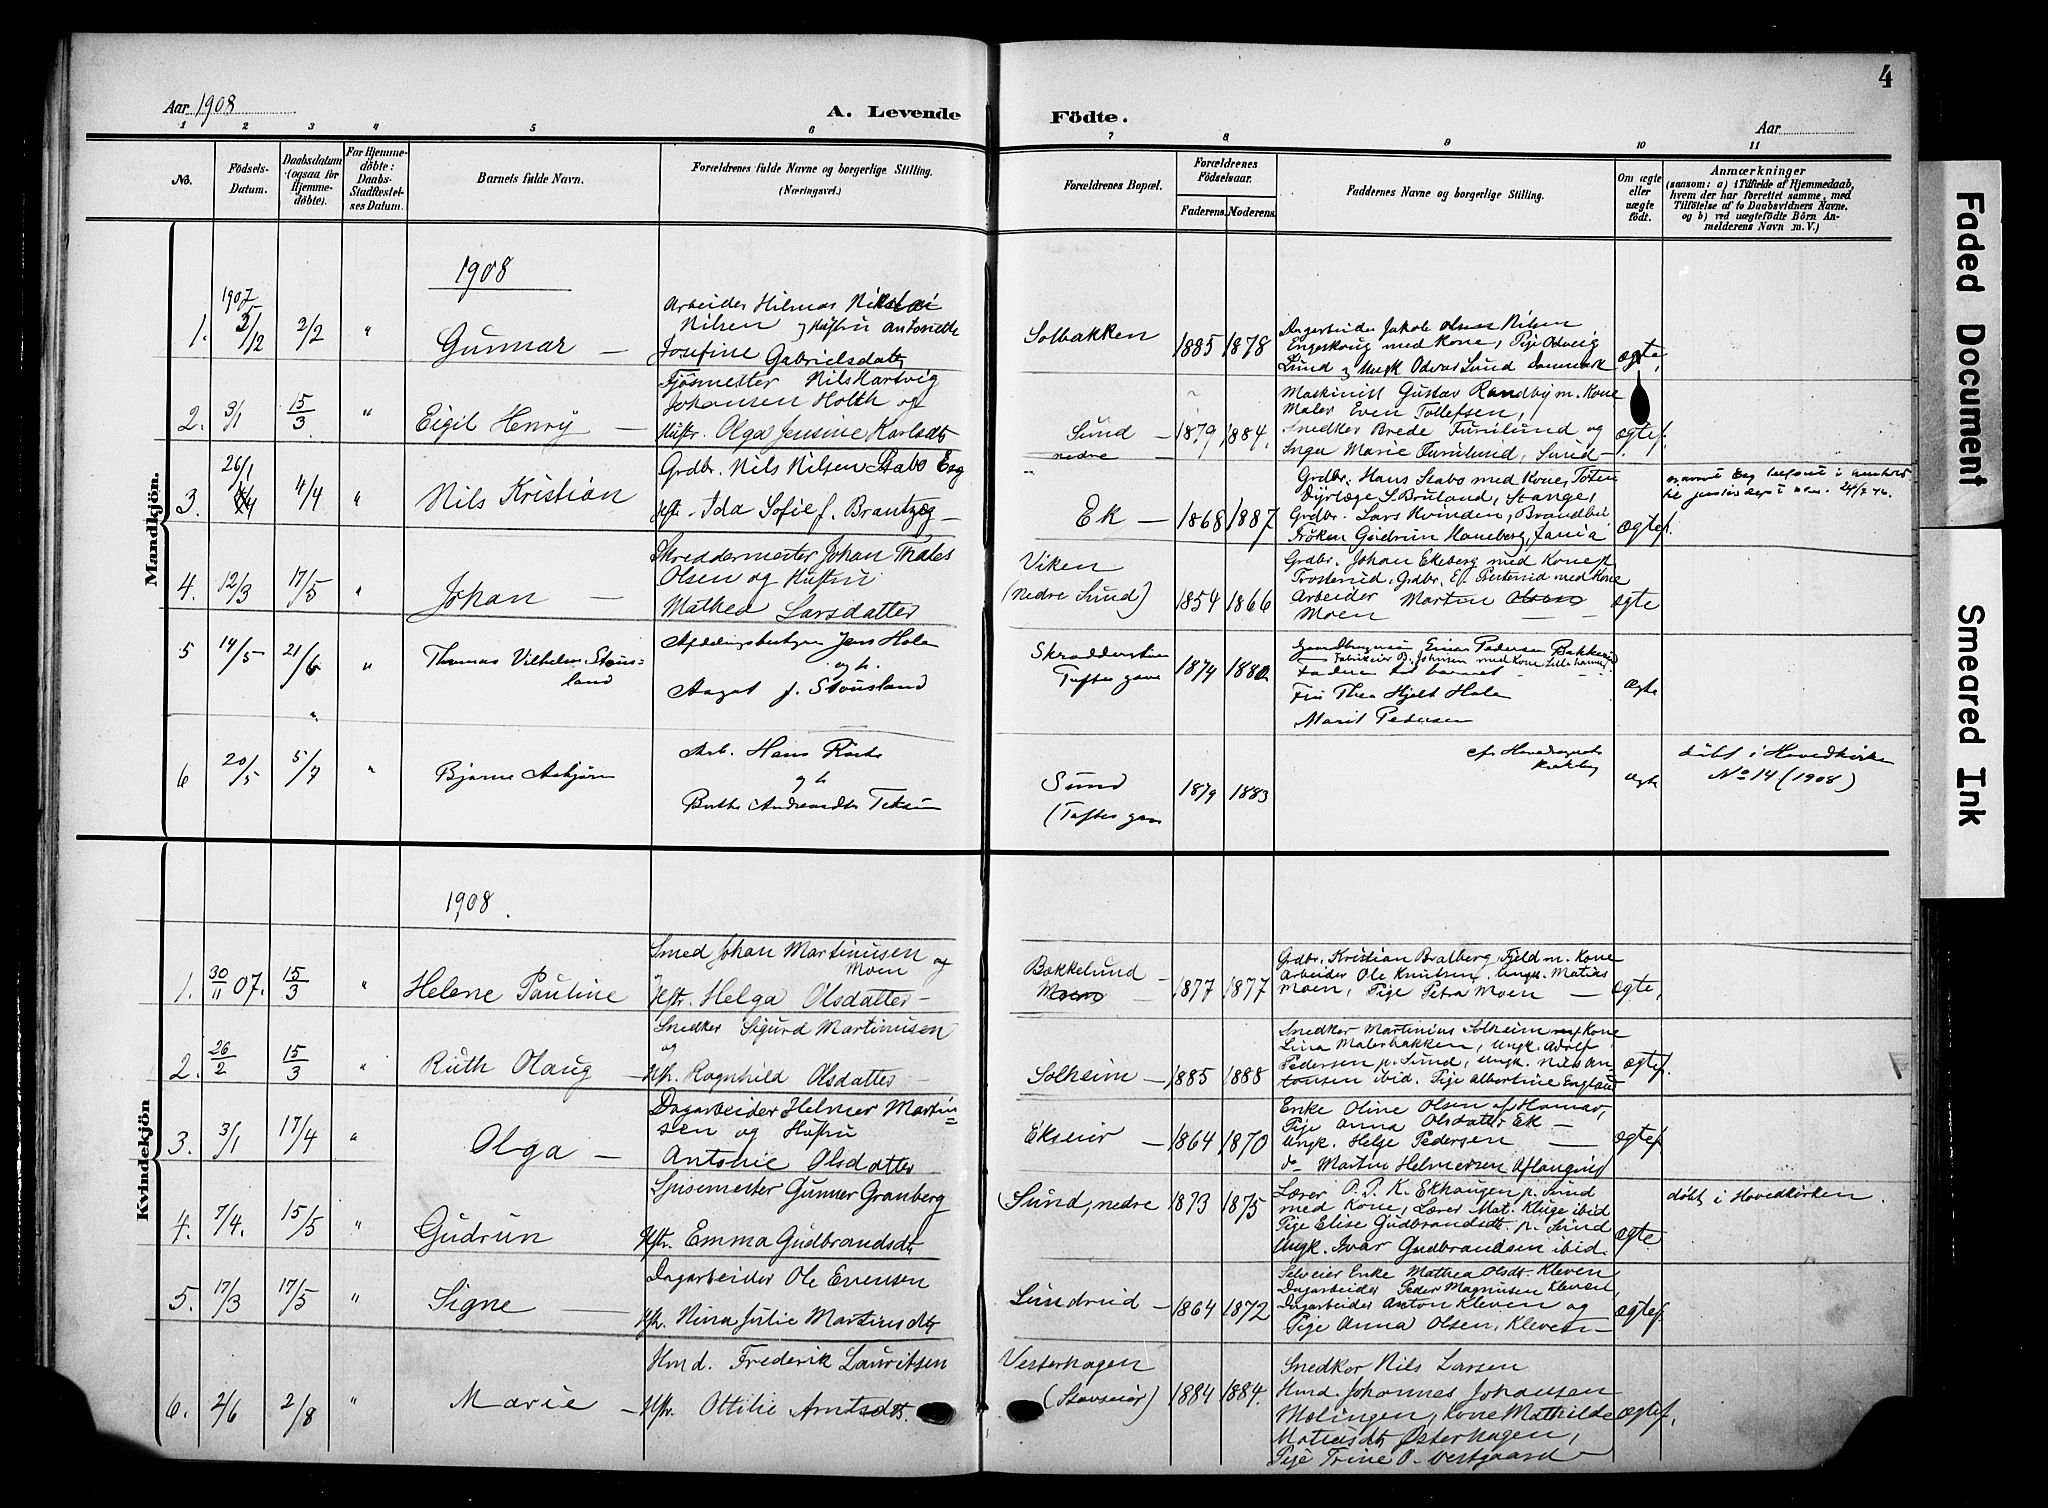 4
Aar 1908
A. Levende Födte.
Aar
1 2 3 4 5 6 7 8 9 10 11
No.
Födsels-
Datum.
Daabsdatum
(ogsaa for
Hjemme-
døbte).
For Hjemme-
døbte:
Daabs-
Stadfæstel-
ses Datum.
Barnets fulde Navn.
Forældrenes fulde Navne og borgerlige Stilling.
(Næringsvei.)
Forældrenes Bopæl.
Forældrenes
Födselsaar.
Faderens.
Moderens.
Faddernes Navne og borgerlige Stilling.
Om ægte
eller
uægte
födt.
Anmærkninger
(saasom: a) i Tilfælde af Hjemmedaab,
hvem der har forrettet samme, med
Tilföielse af to Daabsvidners Navne.
og b) ved uægtefödte Börn An-
melderens Navn m. V.)
Mandkjön.
1908
1907
1. 2/12 2/2 "
Gunnar —
Arbeider Hilmar Nikolai
Nilsen og Hustru Antonette
Josefine Gabrielsdatter
Solbakken
1885 1878
Dagarbeider Jakob Olsen Nilsen
Engeskoug med Kone, Pige Solveig
Lund og Ungk. Odvar Lund Danmark
ægte,
2. 3/1 15/3 "
Eigil Henry —
Fjøsmester Nils Hartvig
Johansen Holth og
Hustr. Olga Jensine Karlsdtr
Sund —
nedre
1879 1884.
Maskinist Gustav Randby m. Kone
Maler Even Tollefsen,
Snedker Brede Furulund og
Inga Marie Furulund, Sund —
ægtef.
3. 26/1 4/4 "
Nils Kristian
Grdbr. Nils Nilsen Stabo Eeg
Hstr. Ida Sofie f. Brantzeg —
Ek —
1868 1887
Grdbr. Hans Stabo med Kone, Toten
Dyrlæge S. Bruland, Stange,
Grdbr. Lars Kvinden, Brandbu
Frøken Gudrun Honeberg,
ægtef.
4. 12/3 17/5 "
Johan —
Skreddermester Johan
Olsen og Hustru
Mathea Larsdatter
Viken
(nedre Sund)
1854 1866
Grdbr. Johan Ekeberg med Kone
Trosterud, Grdbr. med Kone
Arbeider Martin Olsen
Moen —
ægte
5 14/5 21/6 "
Thomas Vilhelm Stous-
land
Afdelingsbestyrer Jens Hole
og h.
Aagot f. Stousland
Skrædderstuen
Toftes gave
1874 1880
Gaardbruger Einar Pedersen Bakkerud
Fabrikeier B. Johnsen med Kone Lillehammer
Faderen til barnet
Fru Thea Hjelt Hole
Marit Pedersen
ægte
6 20/5 5/7 "
Bjarne Asbjørn
Arb. Hans
og h.
Berthe Andreasdtr
Sund
(Toftes gave
1879 1883
cfr Hovedsognets
Kirkebog
ægte
døbt i Hovedkirken
No 14 (1908)
Kvindekjön
1908.
1. 30/11 07. 15/3 "
Helene Pauline
Smed Johan Martinusen
Moen og
Hstr. Helga Olsdatter —
Bækkelund
Moen —
1877 1877
Grdbr. Kristian Bratberg, Fjeld m. Kone
Arbeider Ole Knutsen, Ungk. Matias
Moen, Pige Petra Moen —
ægte,
2. 26/2 15/3 "
Ruth Olaug —
Snedker Sigurd Martinusen
og
Hstr. Ragnhild Olsdatter —
Solheim —
1885 1888
Snedker Martinius Solheim m/ Kone
Lina Malerbakken, Ungk. Adolf
Pedersen p. Sund, Ungk. Nils An-
tonsen ibid. Pige Albertine England
ægtef.
3. 3/1 17/4 "
Olga —
Dagarbeider Helmer Martin-
sen og Hustru
Antonie Olsdatter
Ekseier —
1864 1870
Enke Oline Olsen af Hamar,
Pige Anna Olsdatter Ek —
Ungk. Helge Pedersen —
do— Martin Helmersen
ægtef
4. 7/4. 15/5 "
Gudrun
Spisemester Gunner Granberg
Hstr. Emma Gudbrandsdtr
Sund, nedre
1873 1875
Lærer O. P. K. Ekhaugen p. Sund
med Kone, Lærer Mat. Kluge ibid
Pige Elise Gudbrandsdtr. p. Sund
Ungk. Ivar Gudbrandsen ibid.
ægte
døbt i Hovedkirken.
5. 17/3 17/5 "
Signe —
Dagarbeider Ole Evensen
Hstr. Nina Julie Martinsdtr
Lundrud —
1864 1872
Selveier Enke Mathea Olsdtr. Kleven
Dagarbeider Peder Magnusen Kleven,
Dagarbeider Anton Kleven og
Pige Anna Olsen, Kleven —
ægtef.
6. 2/6 2/8 "
Marie —
Hmd. Frederik Lauritsen
Hstr. Ottilie Arntsdtr.
Vesterhagen
(Stavseier)
1884 1884.
Snedker Nils Larsen
Hmd. Johannes Johansen
Molingen, Kone Mathilde
Matiasdtr Østerhagen,
Pige Trine O. Vestgaard —
ægtef.
Faded Document
Smeared Ink